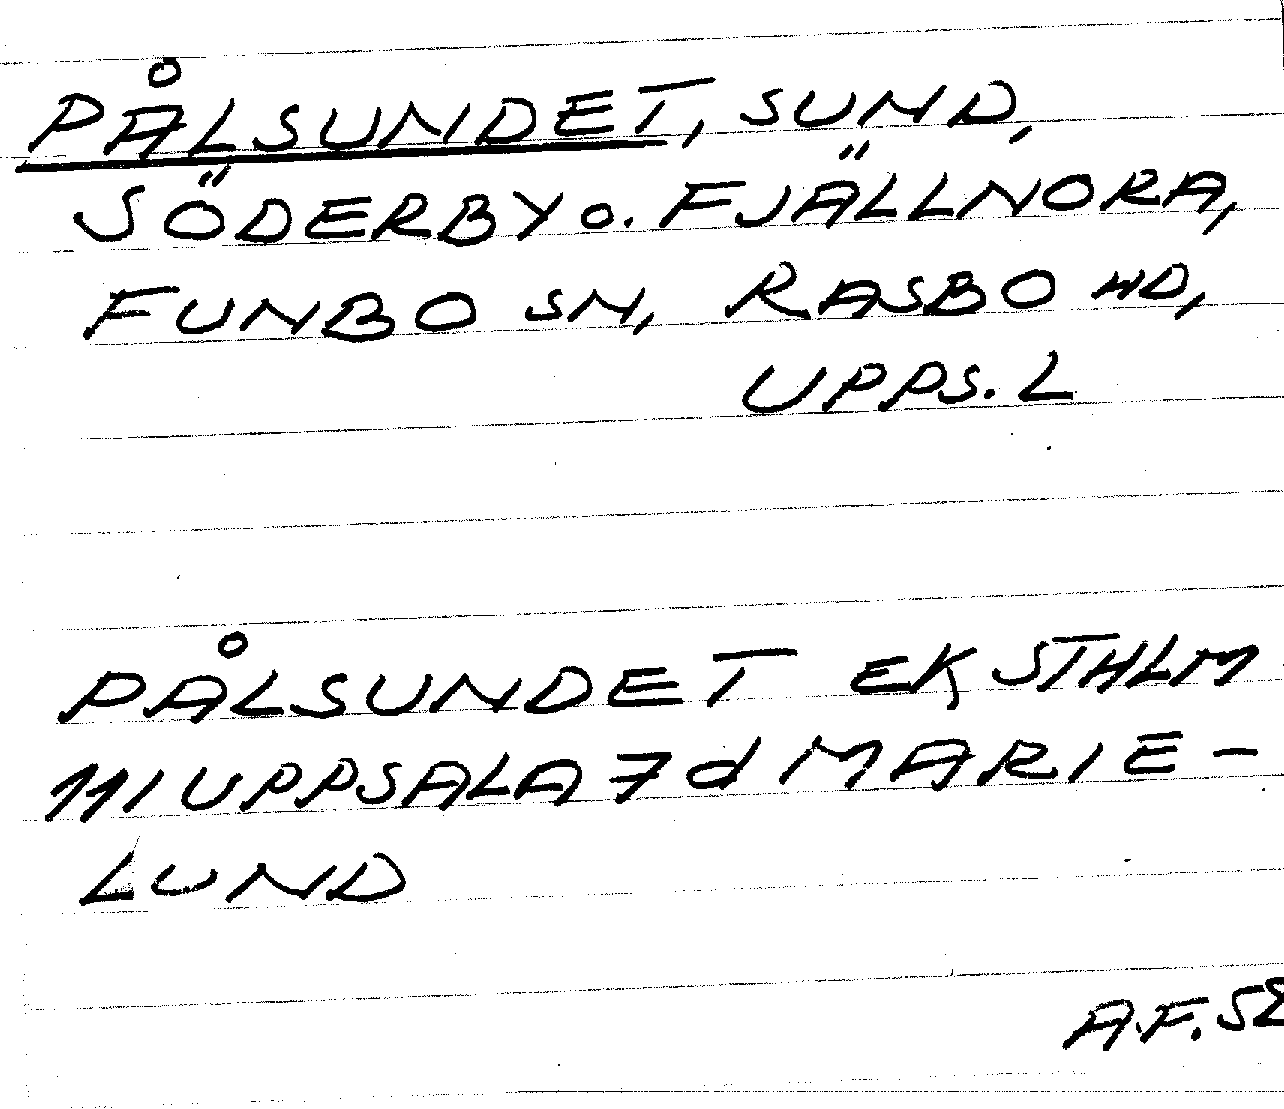 PÅLSUNDET, SUND,
SÖDERBY o. FJÄLLNORA,
FUNBO SN, RASBO HD,
UPPS. L
PÅLSUNDET EK STHLM
111 UPPSALA 7d MARIE-
LUND
A.F. 52